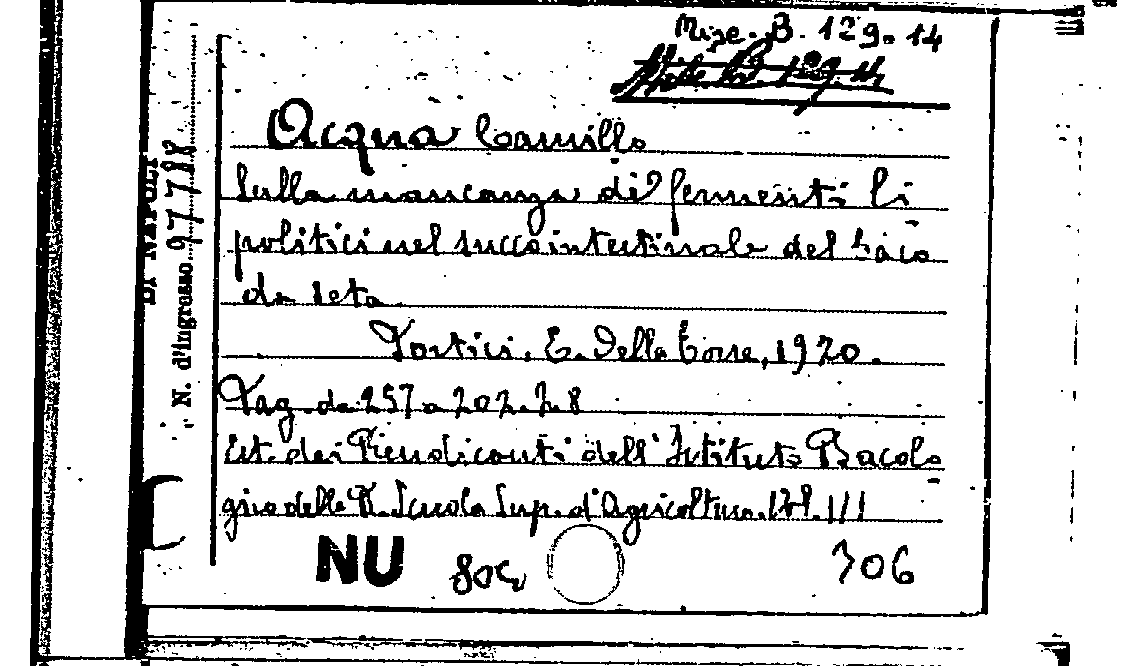 Misc. B. 129. 14
Acqua Camillo
Sulla mancanza di fermenti li
politici nel succo intestinale del baco
da seta
Portici, E. Della Torre, 1920.
Pag. da 257 a 202. In 8
Est. dai Rendiconti dell' Istituto Bacolo
gico della R. Scuola Sup. d'Agricoltura. Vol. III
NU
306
DI NAPOLI
N. d'ingresso 97788